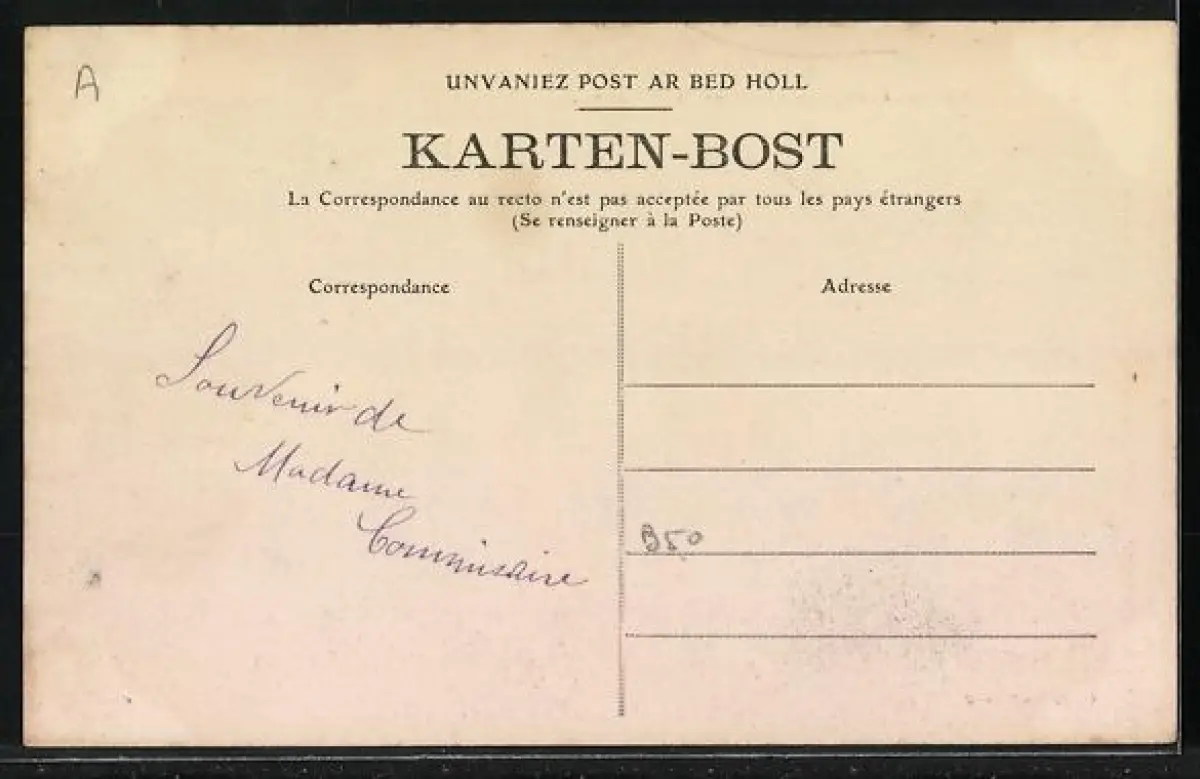 A
UNVANIEZ POST AR BED HOLL
KARTEN-BOST
La Correspondance au recto n'est pas acceptée par tous les pays étrangers
(Se renseigner à la Poste)
Correspondance
Adresse
Souvenir de
Madame
Commisaire
B50